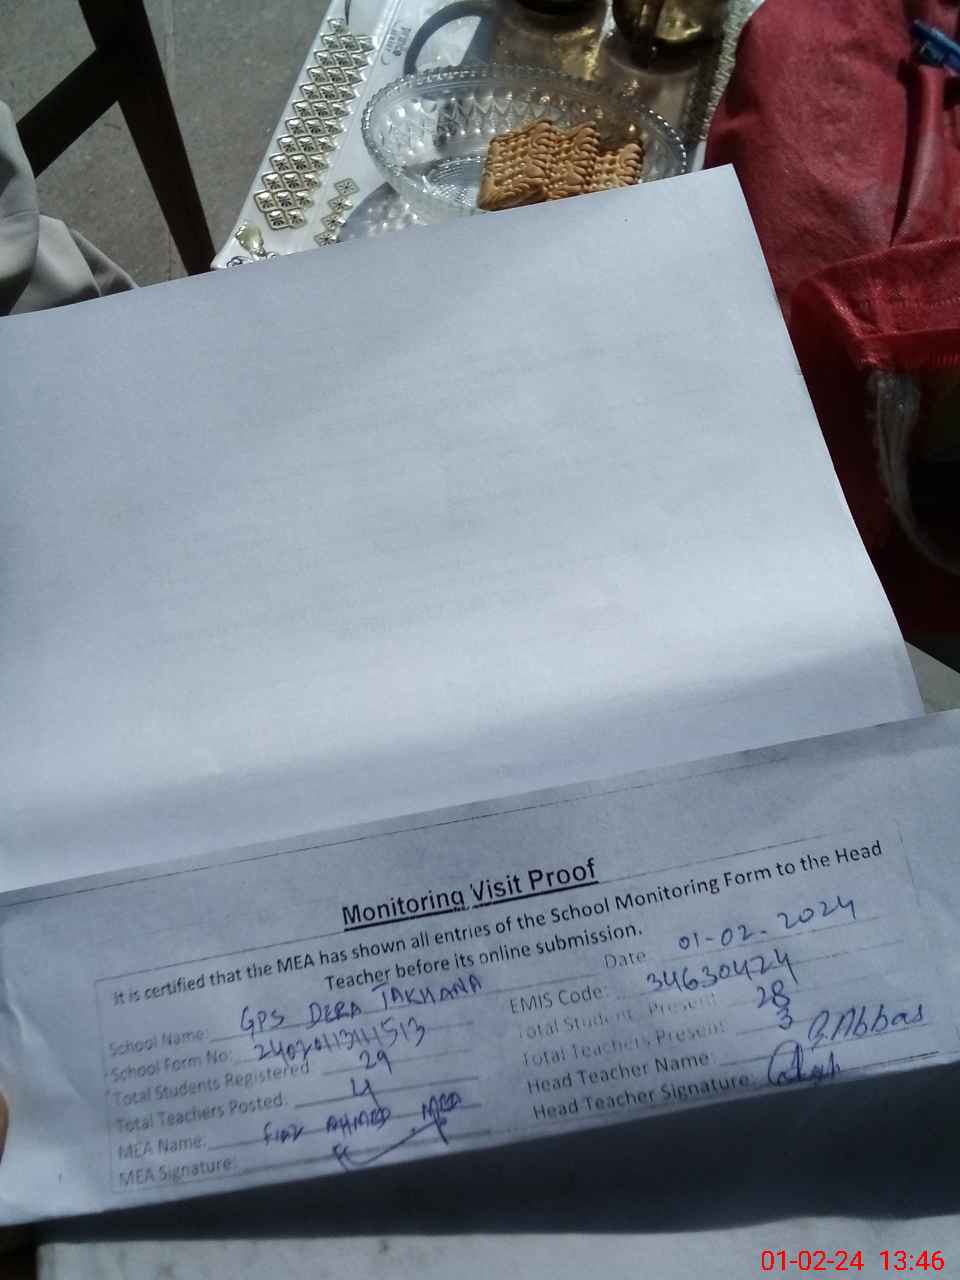 Monitoring Visit Proof
It is certified that the MEA has shown all entries of the School Monitoring Form to the Head
Teacher before its online submission.
Date 01-02-2024
School Name: GPS DERA TAKHANA
EMIS Code: 34630424
School Form No:
Total Student Present 28
Total Students Registered 29
Total Teachers Present 3
Total Teachers Posted: 4
Head Teacher Name: Abbas
MEA Name: AHMED MEA
Head Teacher Signature:
MEA Signature:
01-02-24 13:46